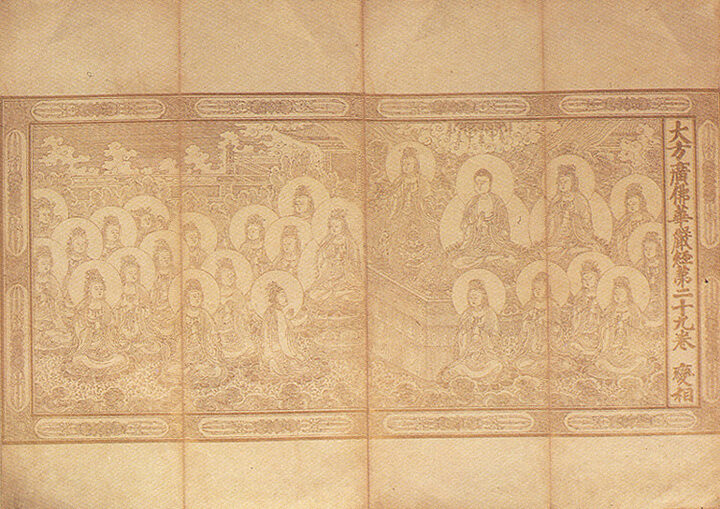 大方廣佛華嚴經第二十九卷 變相